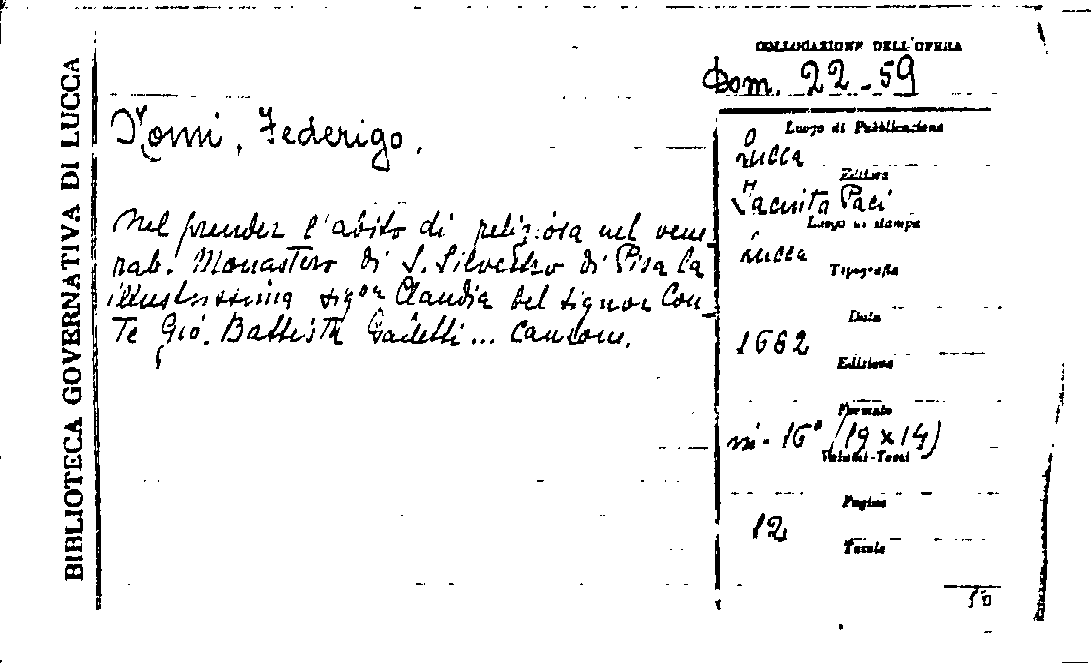 BIBLIOTECA GOVERNATIVA DI LUCCA
COLLOCAZIONE DELL'OPERA
Dom. 22-59
Nomi, Federigo.
Nel prender l'abito di religiosa nel vene_
rab. Monastero di S. Silvestro di Pisa la
illustrissima sigra Claudia del signor Con_
te Gio. Battista Gaetti... Canzone.
Luogo di Pubblicazione
Lucca
Editore
Iacinto Paci
Luogo di stampa
Lucca
Tipografia
Data
1682
Edizione
Formato
in-16° (19 x 14)
Volumi-Tomi
Pagine
12
Tavole